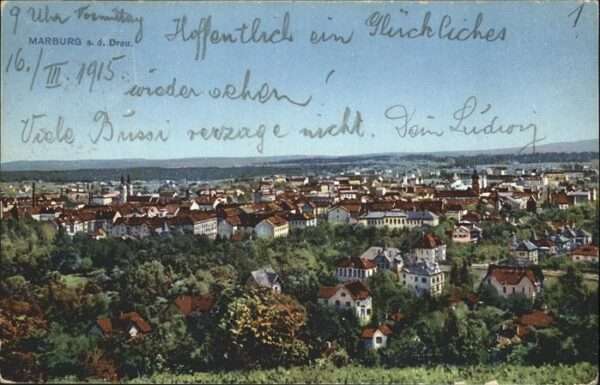 9 Uhr Vormittag
MARBURG a. d. Drau.
16./III. 1915
1
Hoffentlich ein Glückliches
wieder sehen!
Viele Bussi verzage nicht. Dein Ludwig